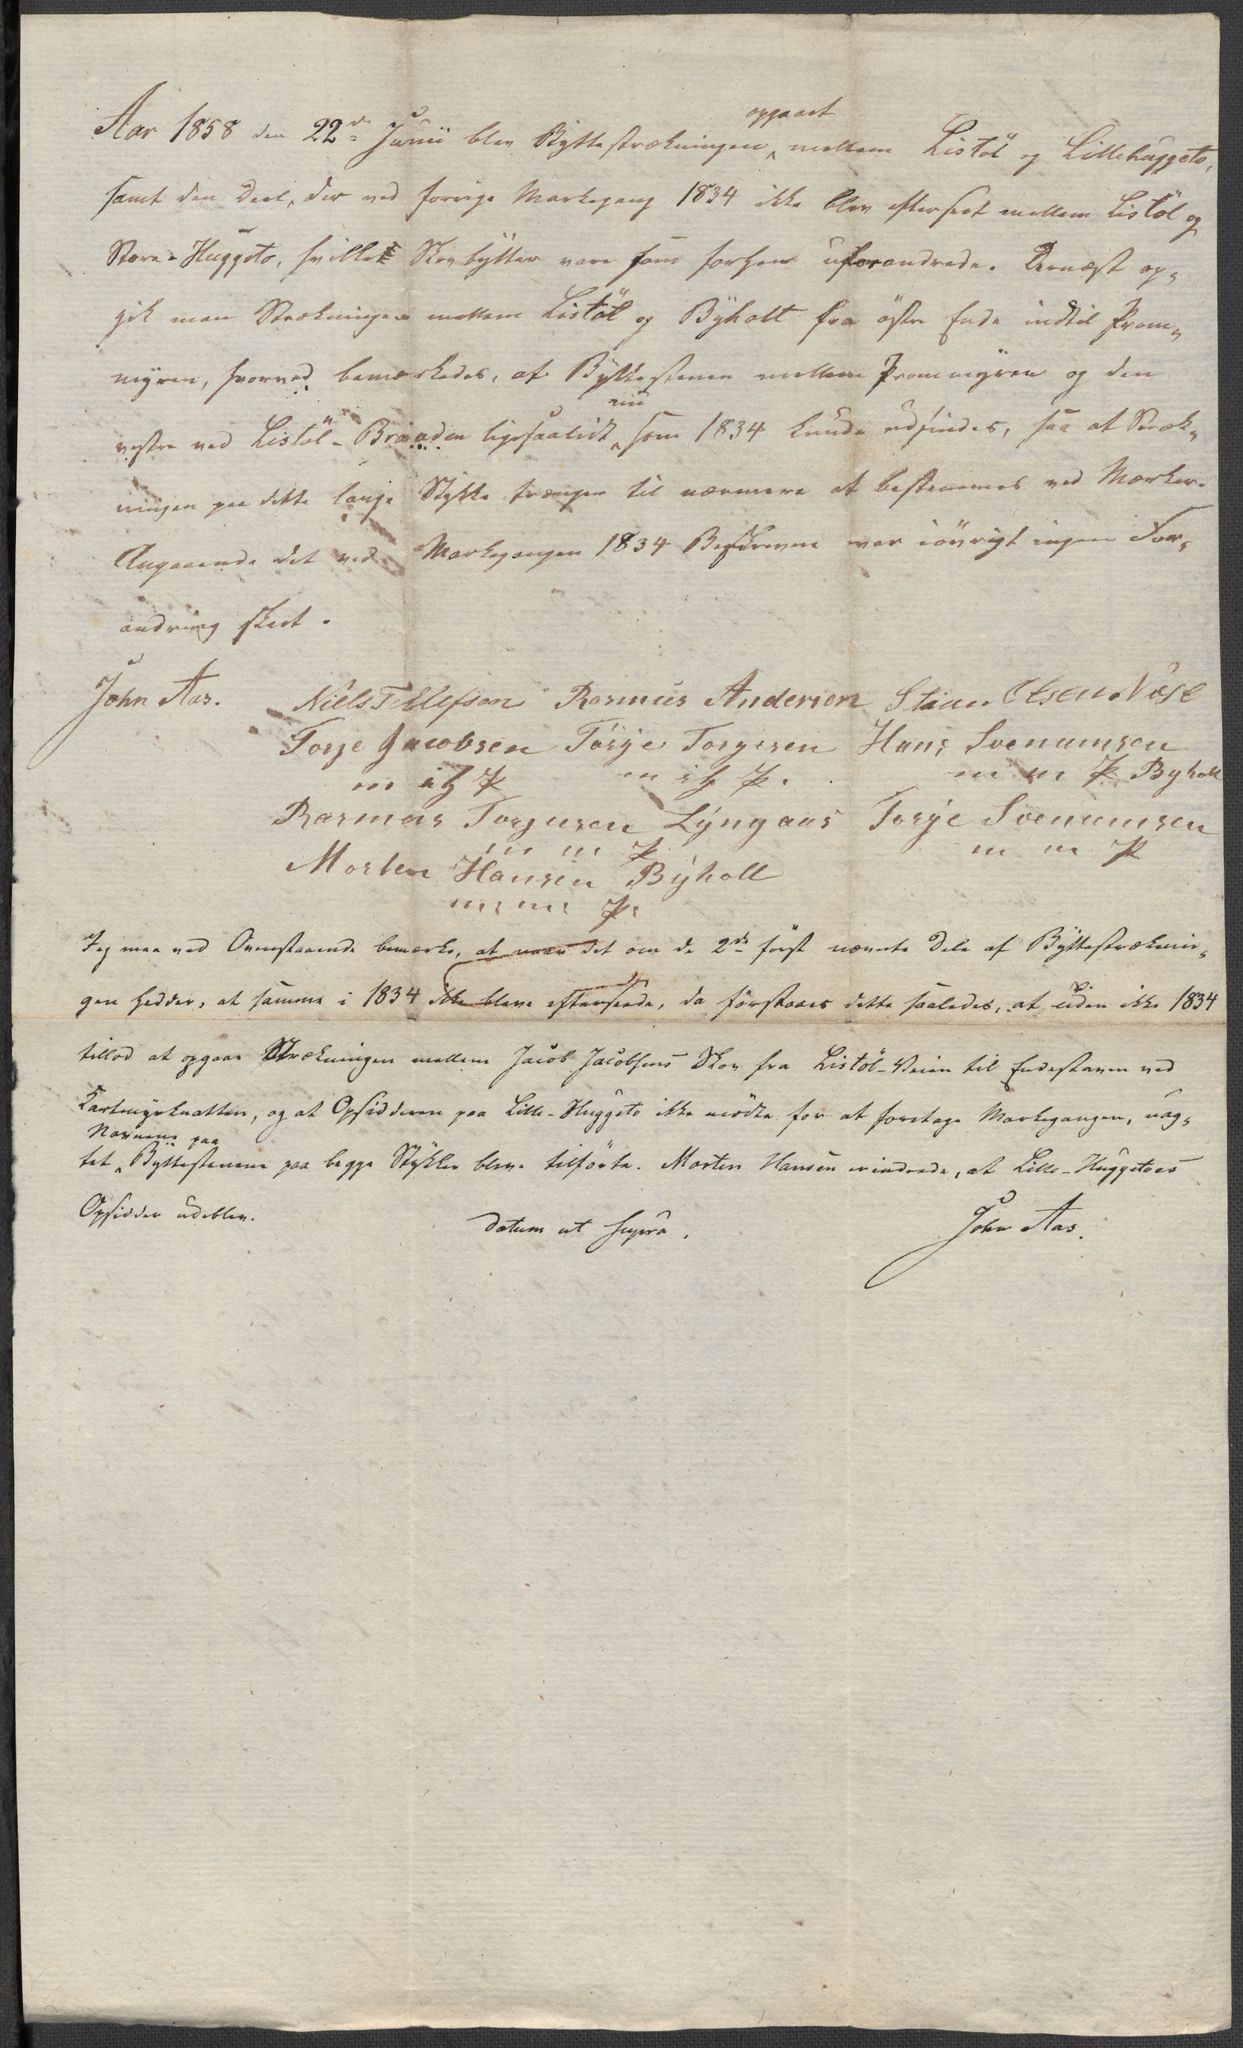 Aar 1858 den 22de Junii blev Byttestrækningen opgaaet mellem Listöl og Lillehuggeto,
samt den Deel, der ved forrige Markegang 1834 ikke blev efterseet mellem Listöl og
Store-Huggeto, hvilke Skovbytter vare som forhen uforandrede. Dernæst op-
gik man Strækningen mellem Listöl og Býholt fra östre Ende indtil Prom-
myren, hvorved bemærkedes, at Byttestenen mellem Prommyren og den
vestre ved Listöl-Braaden ligesaalidt nu som 1834 kunde udfindes, saa at Stræk-
ningen paa dette lange Stykke trænger til nærmere at bestemmes ved Mærker.
Angaaende det ved Markegangen 1834 Beskrevne var iövrigt ingen For-
andring skeet.
John Aas. Niels Tellefsen Rasmus Andersen Stian Olsen Næse
Torje Jacobsen Törje Torgersen Hans Svenumsen
m i h P m i h P. m m P Byholt
Rasmus Torjusen Lýngaas Torje Svenumsen
m m P m m P
Morten Hansen Býholt
m m P
Jeg maa ved Ovenstaaende bemærke, at naar det om de 2de först nævnte Dele af Býttestræknin-
gen hedder, at samme i 1834 ikke bleve efterseede, da forstaaes dette saaledes, at Tiden ikke 1834
tillod at opgaae Strækningen mellem Jacob Jacobsens Skov fra Listöl-Veien til Endestenen ved
Kartmyrknatten, og at Opsidderen paa Lille-Huggeto ikke mödte for at foretage Markegangen, uag-
tet Navnene paa Byttestenene paa begge Stykker bleve tilförte. Morten Hansen erindrede, at Lille-Huggetoes
Opsidder udeblev. datum ut supra. John Aas.